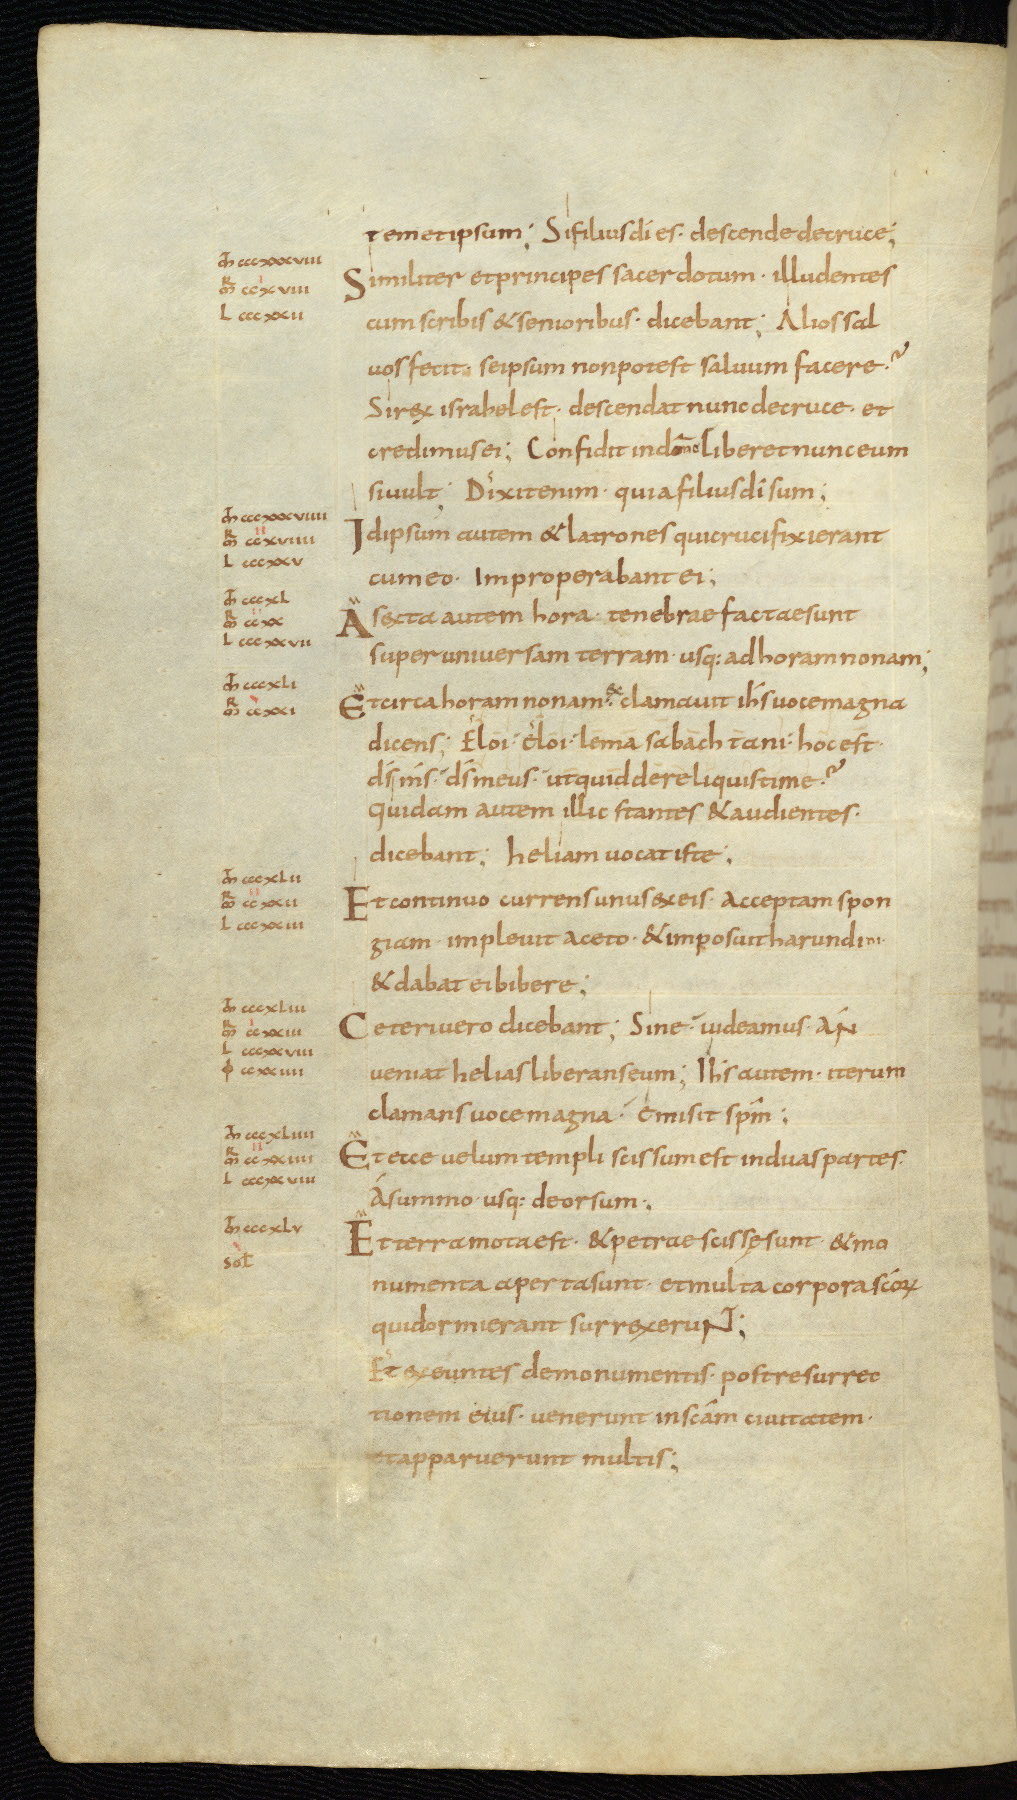 temetipsum; Si filius dī es· descende de cruce;
m̄ cccxxxviii
mR ccxviii
L cccxxii
Similiter et principes sacerdotum· illudentes
cum scribis & senioribus· dicebant; Alios sal
uos fecit· seipsum non potest saluum facere·
Si rex israhel est· descendat nunc de cruce· et
credimus ei; Confidit in dōmino liberet nunc eum
si uult; Dixit enim· quia filius dī sum;
m̄ cccxxxviiii
mR ccxviiii
L cccxxv
Idipsum autem & latrones qui crucifixi erant
cum eo· Improperabant ei;
m̄ cccxl
mR ccxx
L cccxxvii
A sexta autem hora· tenebrae factae sunt
super universam terram· usq: ad horam nonam;
m̄ cccxli
mR ccxxi
Et circa horam nonam· exclamauit ihs uoce magna
dicens; Eloi· eloi· lema sabachtani· hoc est·
ds ms· ds meus· ut quid dereliquisti me·
Quidam autem illic stantes & audientes·
dicebant; heliam uocat iste;
m̄ cccxlii
mR ccxxii
L cccxxiii
Et continuo currens unus ex eis· Acceptam spon
giam· impleuit aceto· & imposuit harundini·
& dabat ei bibere;
m̄ cccxliii
mR ccxxiii
L cccxxviii
φ ccxxiiii
Ceteri uero dicebant; Sine· uideamus· AN
ueniat helias liberans eum; Ihs autem· iterum
clamans uoce magna· emisit spm̄;
m̄ cccxliiii
mR ccxxiiii
L cccxxviiii
Et ecce uelum templi scissum est in duas partes·
A summo· usq: deorsum·,
m̄ cccxlv
sol
Et terra mota est· & petrae scissę sunt· & mo
numenta aperta sunt· et multa corpora scōrꝝ
qui dormierant surrexeruNT;
Et exeuntes de monumentis· post resurrec
tionem eius· uenerunt in scām ciuitatem·
et apparuerunt multis;